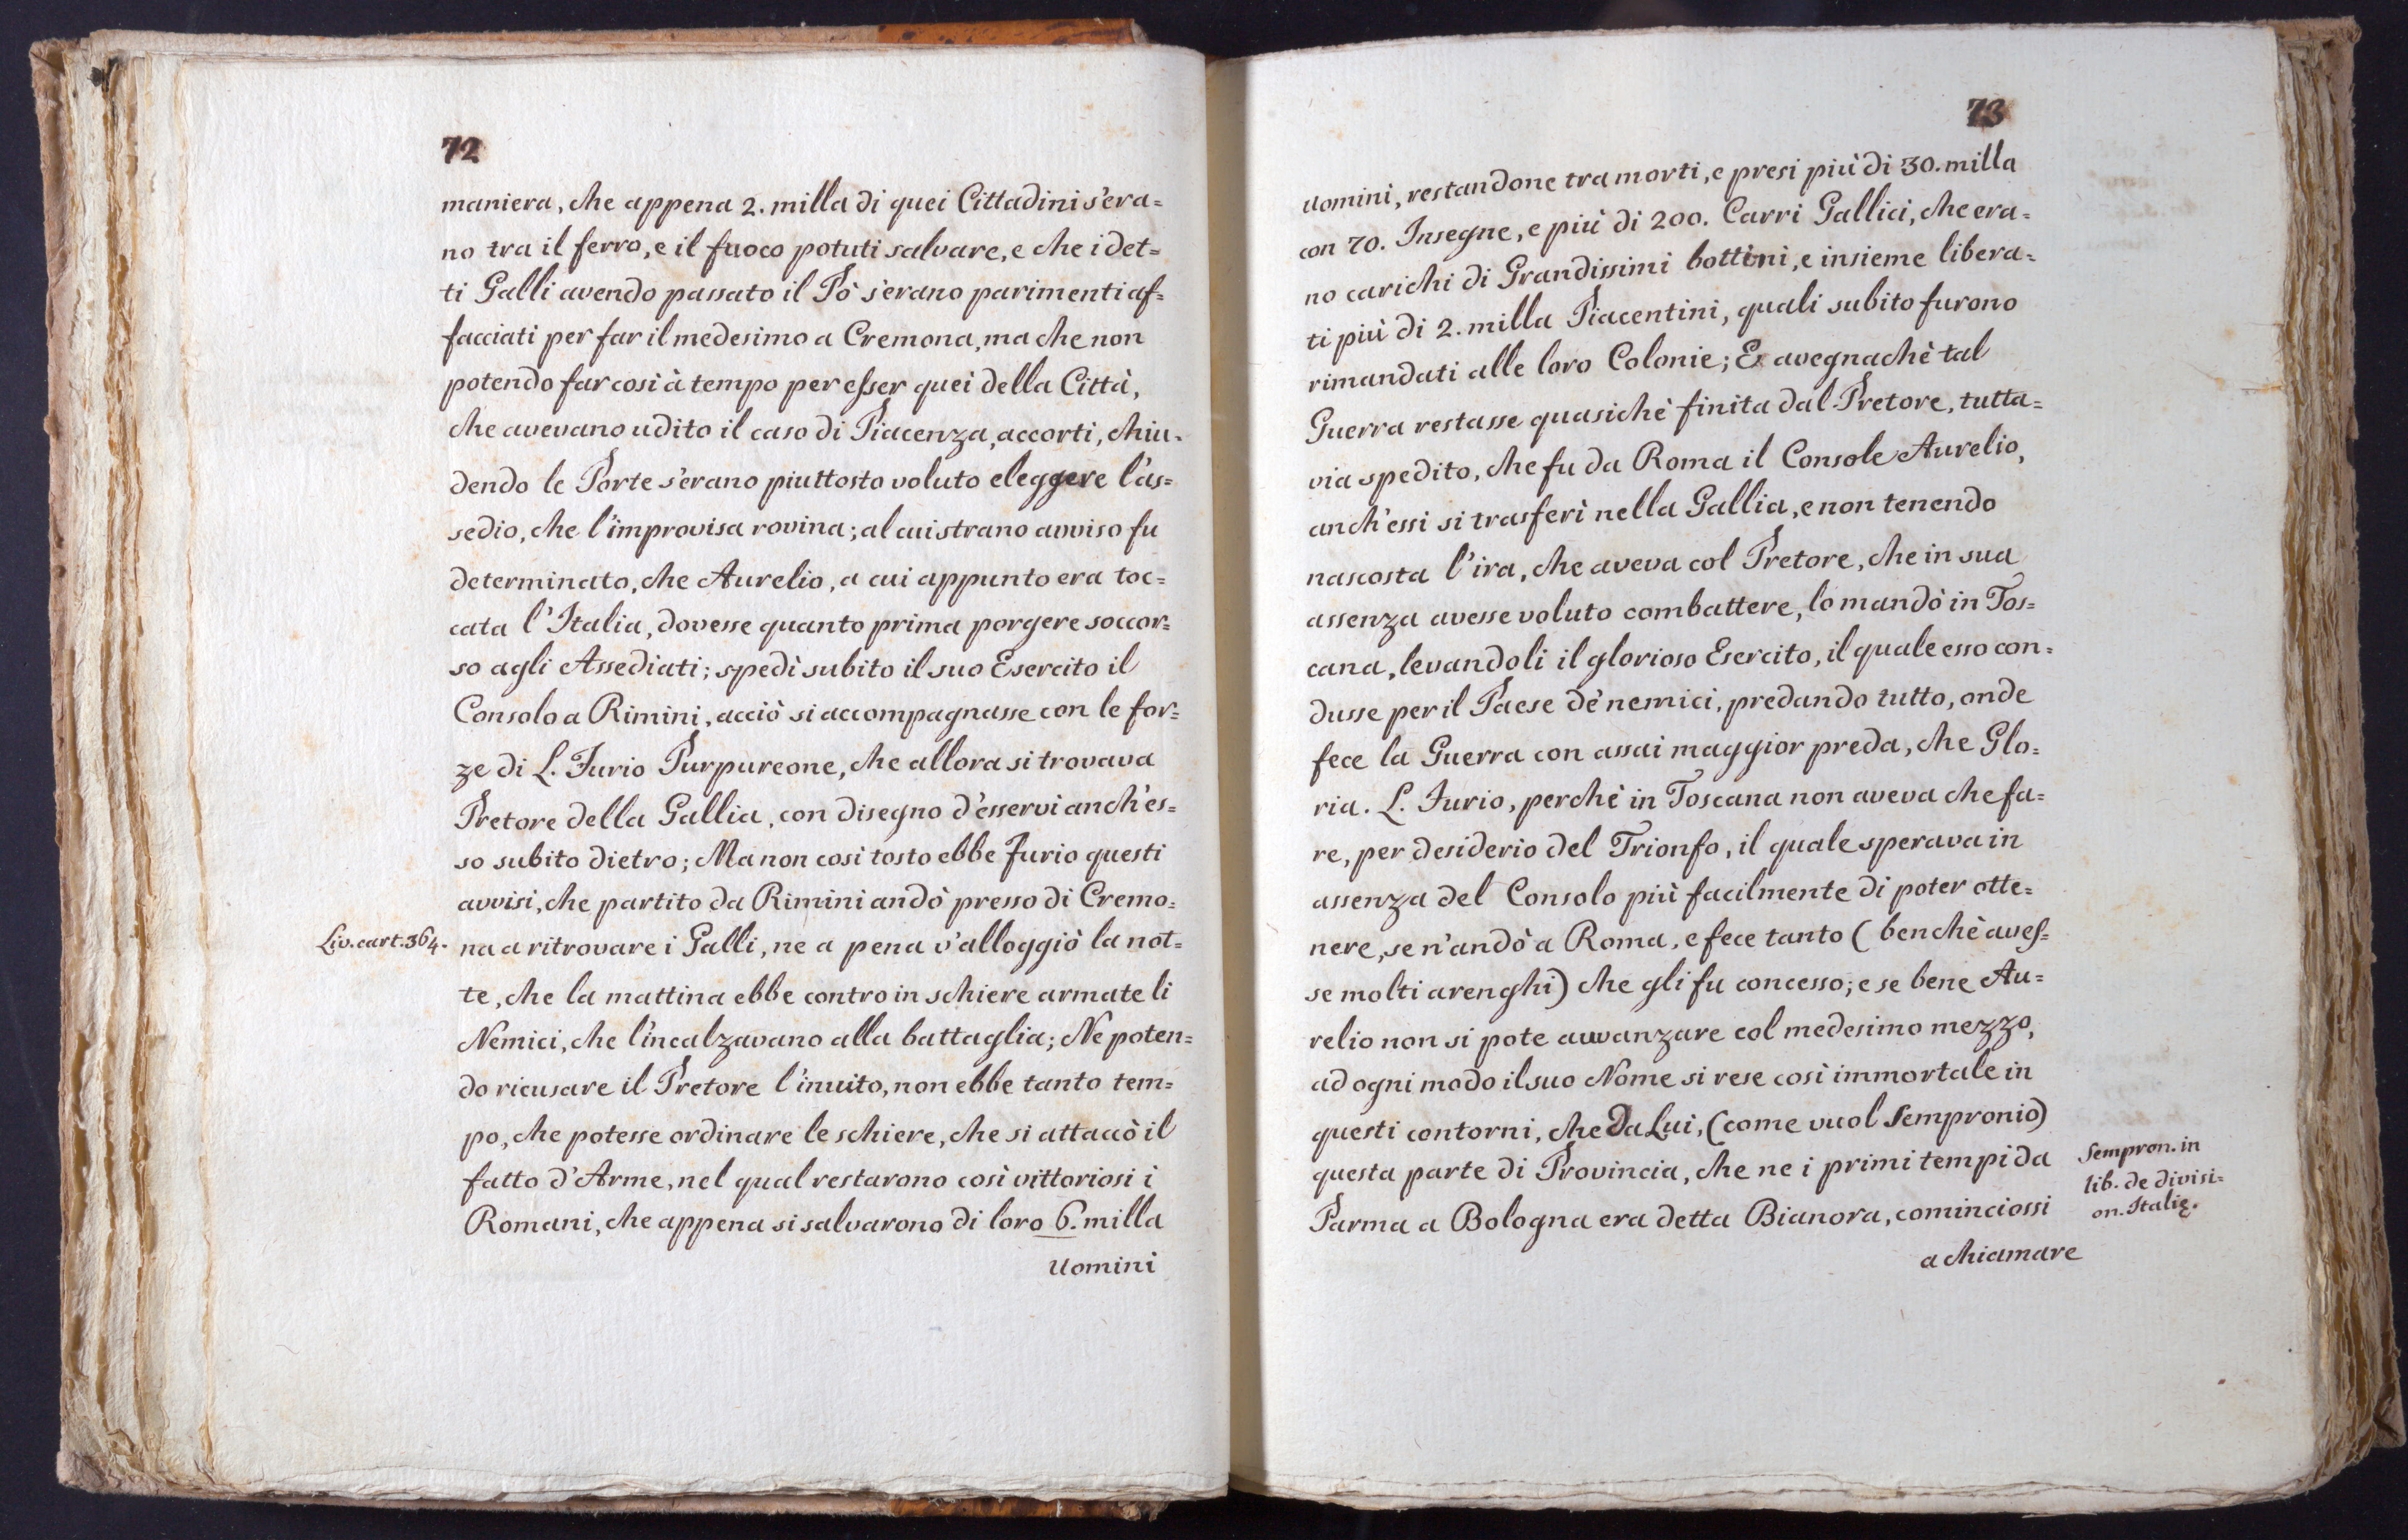 72
maniera, che appena 2. milla di quei Cittadini s'era=
no tra il ferro, e il fuoco potuti salvare, e che i det=
ti Galli avendo passato il Pò s'erano parimenti af=
facciati per far il medesimo a Cremona, ma che non
potendo far così à tempo per esser quei della Città,
che avevano udito il caso di Piacenza, accorti, chiu=
dendo le Porte s'erano piuttosto voluto eleggere l'as=
sedio, che l'improvisa rovina; al cui strano avviso fu
determinato, che Aurelio, a cui appunto era toc=
cata l'Italia, dovesse quanto prima porgere soccor=
so agli Assediati; spedì subito il suo Esercito il
Consolo a Rimini, acciò si accompagnasse con le for=
ze di L. Furio Purpureone, che allora si trovava
Pretore della Gallia, con disegno d'esservi anch'es=
so subito dietro; Ma non così tosto ebbe Furio questi
avvisi, che partito da Rimini andò presso di Cremo=
Liv. cart. 364.
na a ritrovare i Galli, ne a pena v'alloggiò la not=
te, che la mattina ebbe contro in schiere armate li
Nemici, che l'incalzavano alla battaglia; Ne poten=
do ricusare il Pretore l'inuito, non ebbe tanto tem=
po, che potesse ordinare le schiere, che si attaccò il
fatto d'Arme, nel qual restarono così vittoriosi i
Romani, che appena si salvarono di loro 6. milla
uomini
73
uomini, restandone tra morti, e presi più di 30. milla
con 70. Insegne, e più di 200. Carri Gallici, che era=
no carichi di Grandissimi bottini, e insieme libera=
ti più di 2. milla Piacentini, quali subito furono
rimandati alle loro Colonie; E avegnachè tal
Guerra restasse quasichè finita dal Pretore, tutta=
via spedito, che fu da Roma il Console Aurelio,
anch'essi si trasferì nella Gallia, e non tenendo
nascosta l'ira, che aveva col Pretore, che in sua
assenza avesse voluto combattere, lo mandò in Tos=
cana, levandoli il glorioso Esercito, il quale esso con=
dusse per il Paese de' nemici, predando tutto, onde
fece la Guerra con assai maggior preda, che Glo=
ria. L. Furio, perchè in Toscana non aveva che fa=
re, per desiderio del Trionfo, il quale sperava in
assenza del Consolo più facilmente di poter otte=
nere, se n'andò a Roma, e fece tanto (benchè aves=
se molti arenghi) che gli fu concesso; e se bene Au=
relio non si pote avvanzare col medesimo mezzo,
ad ogni modo il suo Nome si rese così immortale in
questi contorni, che da Lui, (come vuol Sempronio)
questa parte di Provincia, che ne i primi tempi da
Parma a Bologna era detta Bianora, cominciossi
Sempron. in
lib. de divisi=
on. Italię.
a chiamare